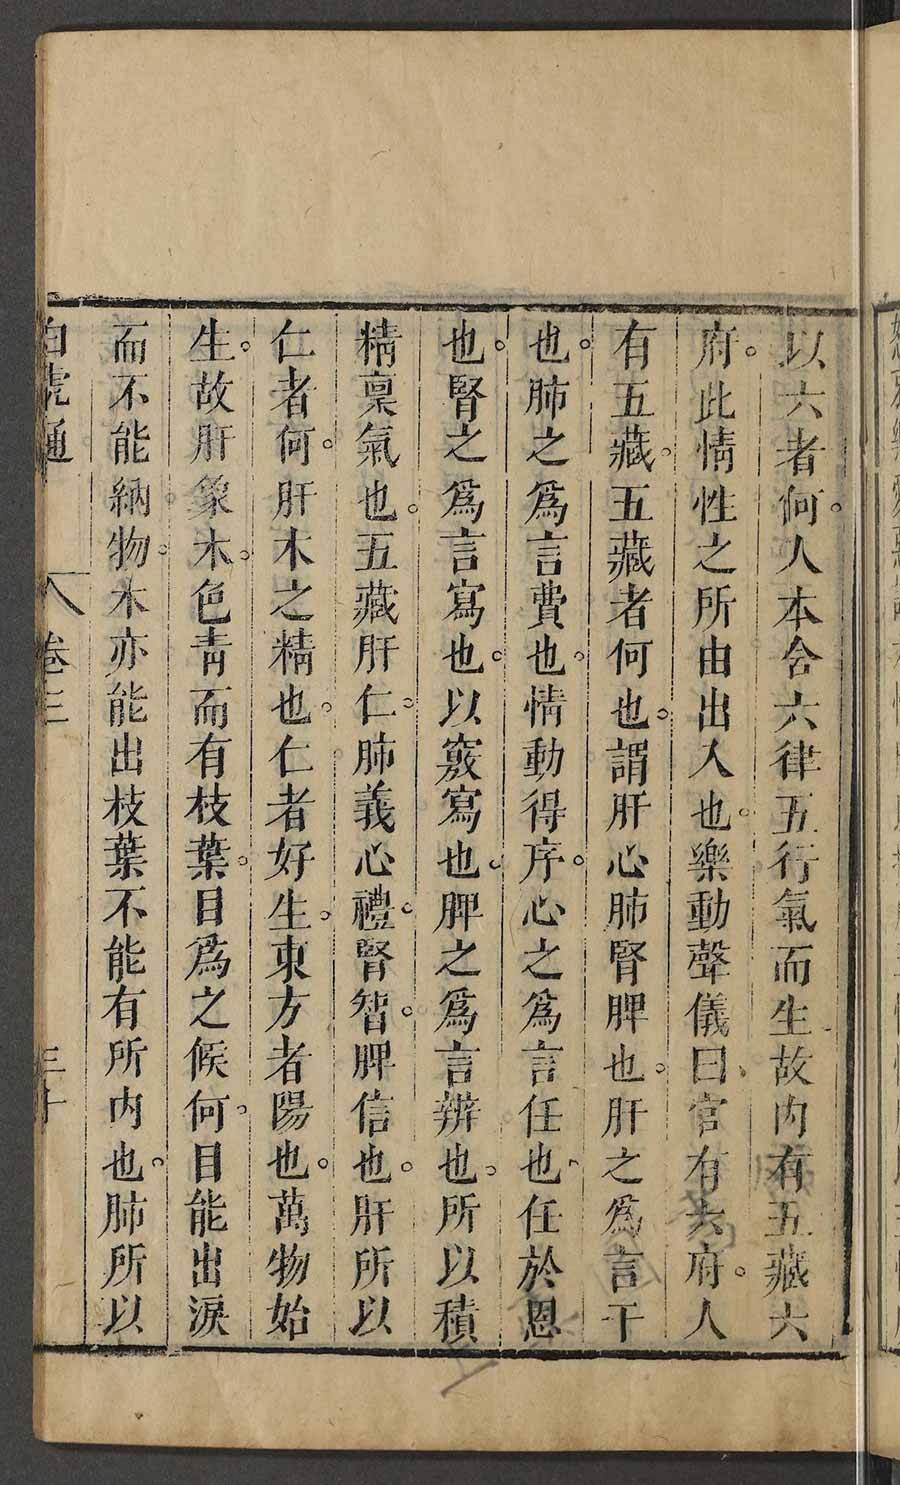 以六者何。人本含六律五行氣而生故内有五藏六
府。此情性之所由出入也。樂動聲儀曰官有六府。人
有五藏。五藏者何也。謂肝心肺腎脾也。肝之爲言干
也。肺之爲言費也。情動得序。心之爲言任也。任於恩
也。腎之爲言寫也。以竅寫也。脾之爲言辨也。所以積
精稟氣也。五藏肝仁。肺義心禮。腎智。脾信也。肝所以
仁者何。肝木之精也。仁者好生。東方者陽也。萬物始
生。故肝象木。色青而有枝葉。目爲之候何。目能出淚
而不能納物。木亦能出枝葉不能有所内也。肺所以
白虎通 卷三 三十